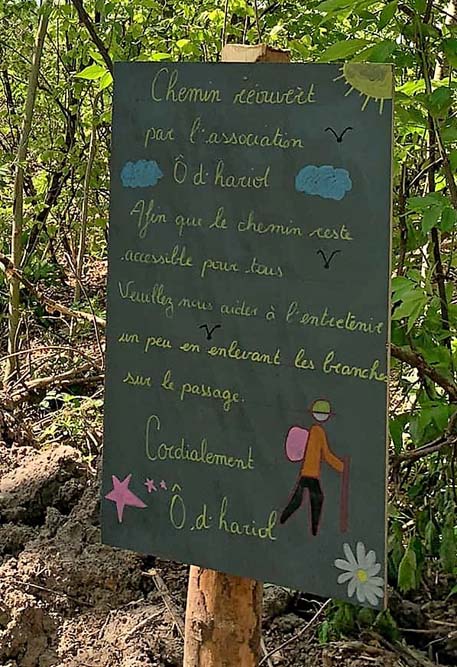 Chemin réouvert
par l'association
Ô d'hariol
Afin que le chemin reste
accessible pour tous
Veuillez nous aider à l'entretenir
un peu en enlevant les branches
sur le passage.
Cordialement
Ô d'hariol